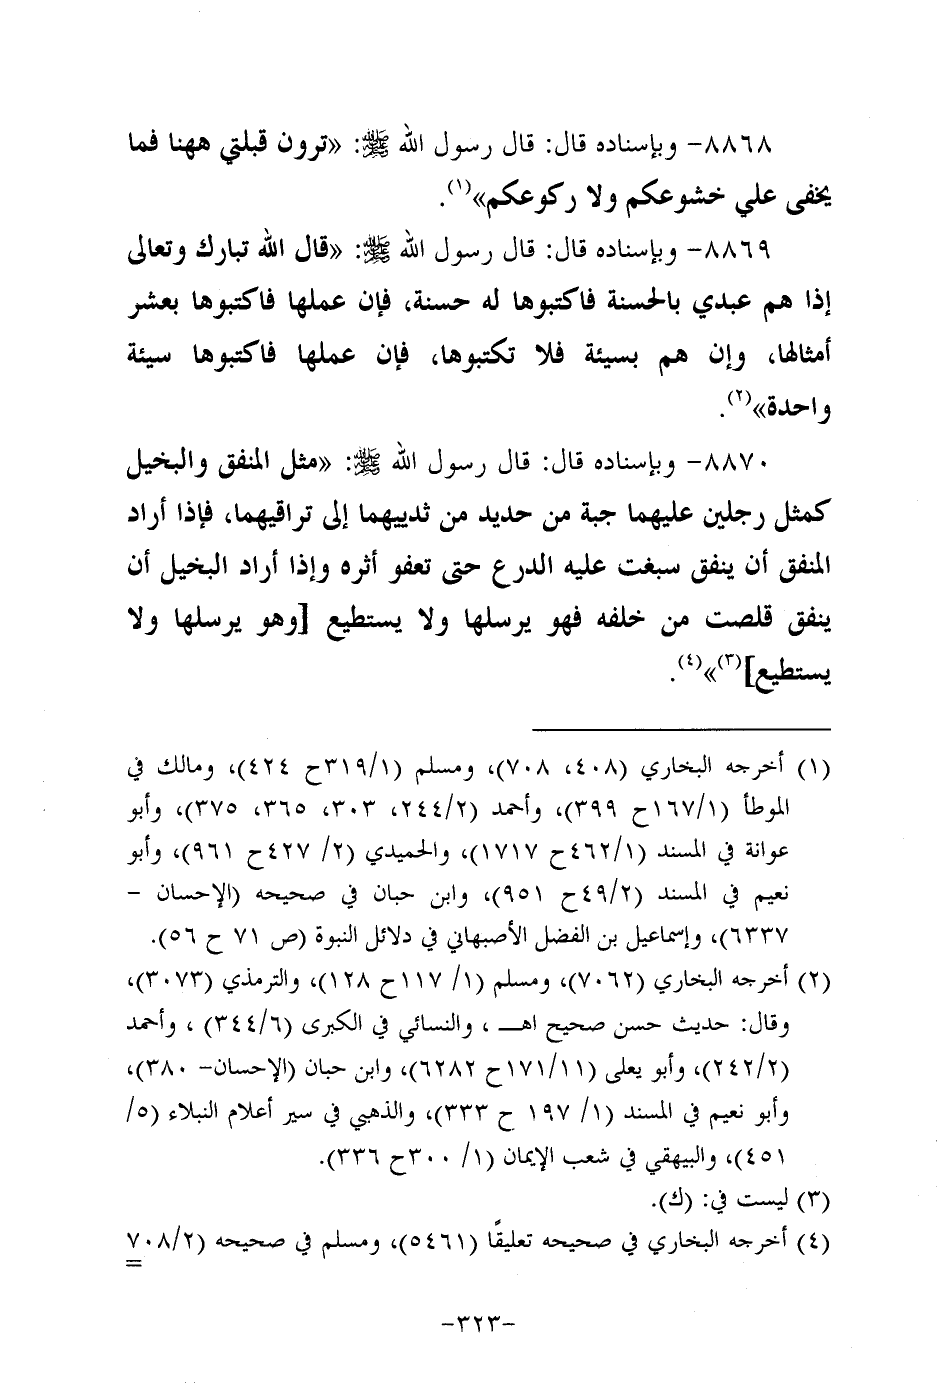 ٨٨٦٨- وبإسناده قال: قال رسول الله ﷺ: «ترون قبلتي ههنا فما
يخفى علي خشوعكم ولا ركوعكم»(١).
٨٨٦٩- وبإسناده قال: قال رسول الله ﷺ: «قال الله تبارك وتعالى
إذا هم عبدي بالحسنة فاكتبوها له حسنة، فإن عملها فاكتبوها بعشر
أمثالها، وإن هم بسيئة فلا تكتبوها، فإن عملها فاكتبوها سيئة
واحدة»(٢).
٨٨٧٠- وبإسناده قال: قال رسول الله ﷺ: «مثل المنفق والبخيل
كمثل رجلين عليهما جبة من حديد من ثدييهما إلى تراقيهما، فإذا أراد
المنفق أن ينفق سبغت عليه الدرع حتى تعفو أثره وإذا أراد البخيل أن
ينفق قلصت من خلفه فهو يرسلها ولا يستطيع [وهو يرسلها ولا
يستطيع](٣)»(٤).
(١) أخرجه البخاري (٤٠٨، ٧٠٨)، ومسلم (٣١٩/١ح ٤٢٤)، ومالك في
الموطأ (١٦٧/١ح ٣٩٩)، وأحمد (٢٤٤/٢، ٣٠٣، ٣٦٥، ٣٧٥)، وأبو
عوانة في المسند (٤٦٢/١ح ١٧١٧)، والحميدي (٢/ ٤٢٧ح ٩٦١)، وأبو
نعيم في المسند (٤٩/٢ح ٩٥١)، وابن حبان في صحيحه (الإحسان -
٦٣٣٧)، وإسماعيل بن الفضل الأصبهاني في دلائل النبوة (ص ٧١ ح ٥٦).
(٢) أخرجه البخاري (٧٠٦٢)، ومسلم (١/ ١١٧ح ١٢٨)، والترمذي (٣٠٧٣)،
وقال: حديث حسن صحيح اهـ ، والنسائي في الكبرى (٣٤٤/٦) ، وأحمد
(٢٤٢/٢)، وأبو يعلى (١٧١/١١ح ٦٢٨٢)، وابن حبان (الإحسان- ٣٨٠)،
وأبو نعيم في المسند (١/ ١٩٧ ح ٣٣٣)، والذهبي في سير أعلام النبلاء (٥/
٤٥١)، والبيهقي في شعب الإيمان (١/ ٣٠٠ح ٣٣٦).
(٣) ليست في: (ك).
(٤) أخرجه البخاري في صحيحه تعليقًا (٥٤٦١)، ومسلم في صحيحه (٧٠٨/٢
=
-٣٢٣-